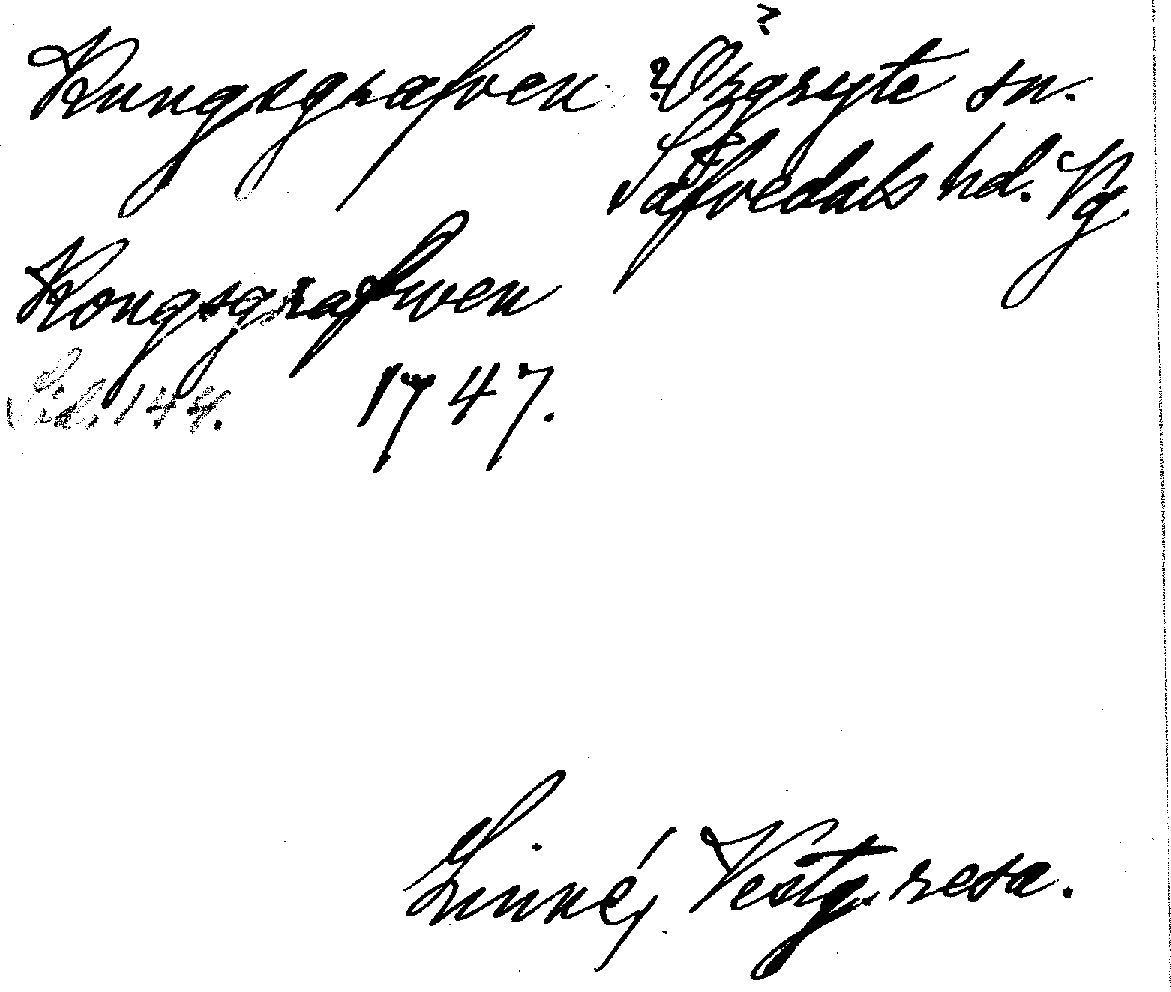 Kungsgrafven ? Örgryte sn.
Säfvedals hd. Vg.
Kongsgrafwen
Sid. 144. 1747.
Linné, Vestg. resa.